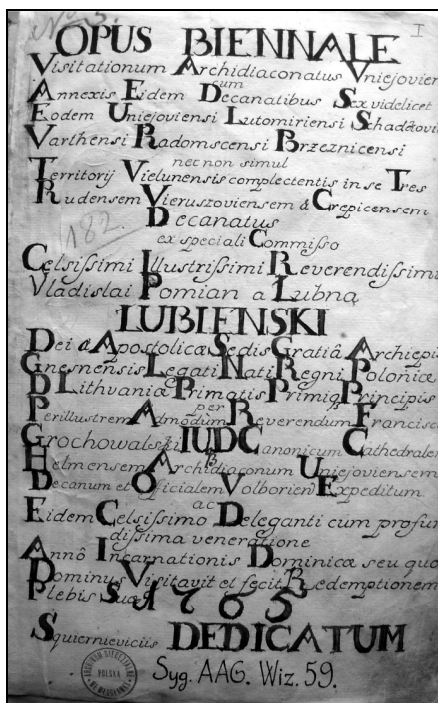 No 3.
I
OPUS BIENNALE
Visitationum Archidiaconatus Vniejovien
Annexis Eidem Decanatibus Sex videlicet
sum
Eodem Uniejoviensi Lutomiriensi Schadkovi
Varthensi Radomscensi Brzeznicensi
nec non simul
Territorij Vielunensis complectentis in se Tres
Rudensem Vieruszoviensem & Crepicensem
Decanatus
182.
ex speciali Commisso
Celsissimi Illustrissimi Reverendissimi
Vladislai Pomian a Lubna
LUBIENSKI
Dei & Apostolicæ Sedis Gratiâ Archiepi
Gnesnensis Legati Nati Regni Poloniæ
D Lithvaniæ Primatis Primiq Principis
per
Perillustrem Admodum Reverendum Francisc
Grochowalski IUDCanonicum Cathedralem
Helmensem Archidiaconum Uniejoviensem
Decanum et Officialem Volborien Expeditum
ac
Eidem Celsissimo Deleganti cum profun
dissima veneratione
Annô Incarnationis Dominicæ seu quo
Dominus Visitavit et fecit Redemptionem
Plebis Suæ 1765
Squierneviciis DEDICATUM
Syg. AAG. Wiz. 59.
POLSKA